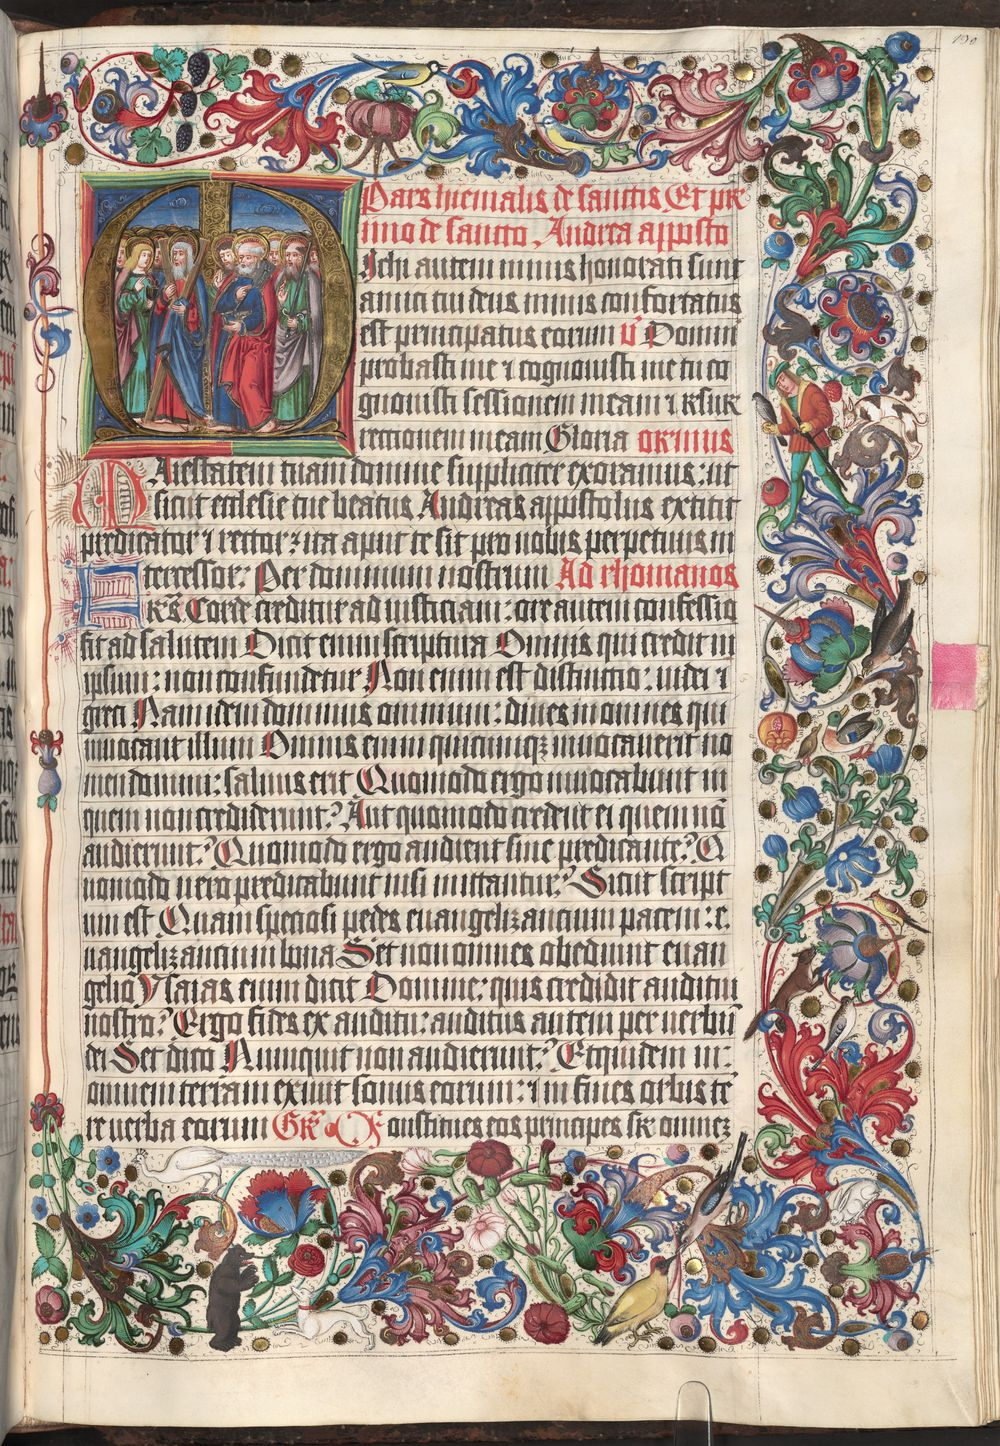 190
Pars hiemalis de sanctis. Et pri
mo de sancto. Andrea apposto
Ichi autem nimis honorati sunt
amici tui deus nimis confortatus
est principatus eorum v̄ Domine
probasti me ⁊ cognouisti me tu co
gnouisti sessionem meam ⁊ resur
rectionem meam Gloria oremus
Maiestatem tuam domine suppliciter exoramus: ut
sicut ecclesie tue beatus Andreas appostolus extitit
predicator ⁊ rector: ita aput te sit pro nobis perpetuus in
tercessor: Per dominum nostrum Ad rhomanos
Corde creditur ad iusticiam: ore autem confessio
fit ad salutem Dicit enim scriptura Omnis qui credit in
ipsum: non confundetur Non enim est distinctio: iudei ⁊
greci Nam idem dominus omnium: diues in omnes qui
inuocant illum Omnis enim quicumqꝫ inuocauerit no
men domini: saluus erit Quomodo ergo inuocabunt in
quem non crediderunt? Aut quomodo credent ei quem nō
audierunt? Quomodo ergo audient sine predicante? Q
uomodo uero predicabunt nisi mittantur? Sicut script
um est Quam speciosi pedes euangelizancium pacem: e
uangelizancium bona Set non omnes obediunt euan
gelio Ysaias enim dicit Domine: quis credidit auditui
nostro? Ergo fides ex auditu: auditus autem per uerbū
dei Set dico Nunquit non audierunt? Et quidem in:
omnem terram exiuit sonus eorum: ⁊ in fines orbis te
re uerba eorum Gr̄ Constitues eos principes sr̄ omnez